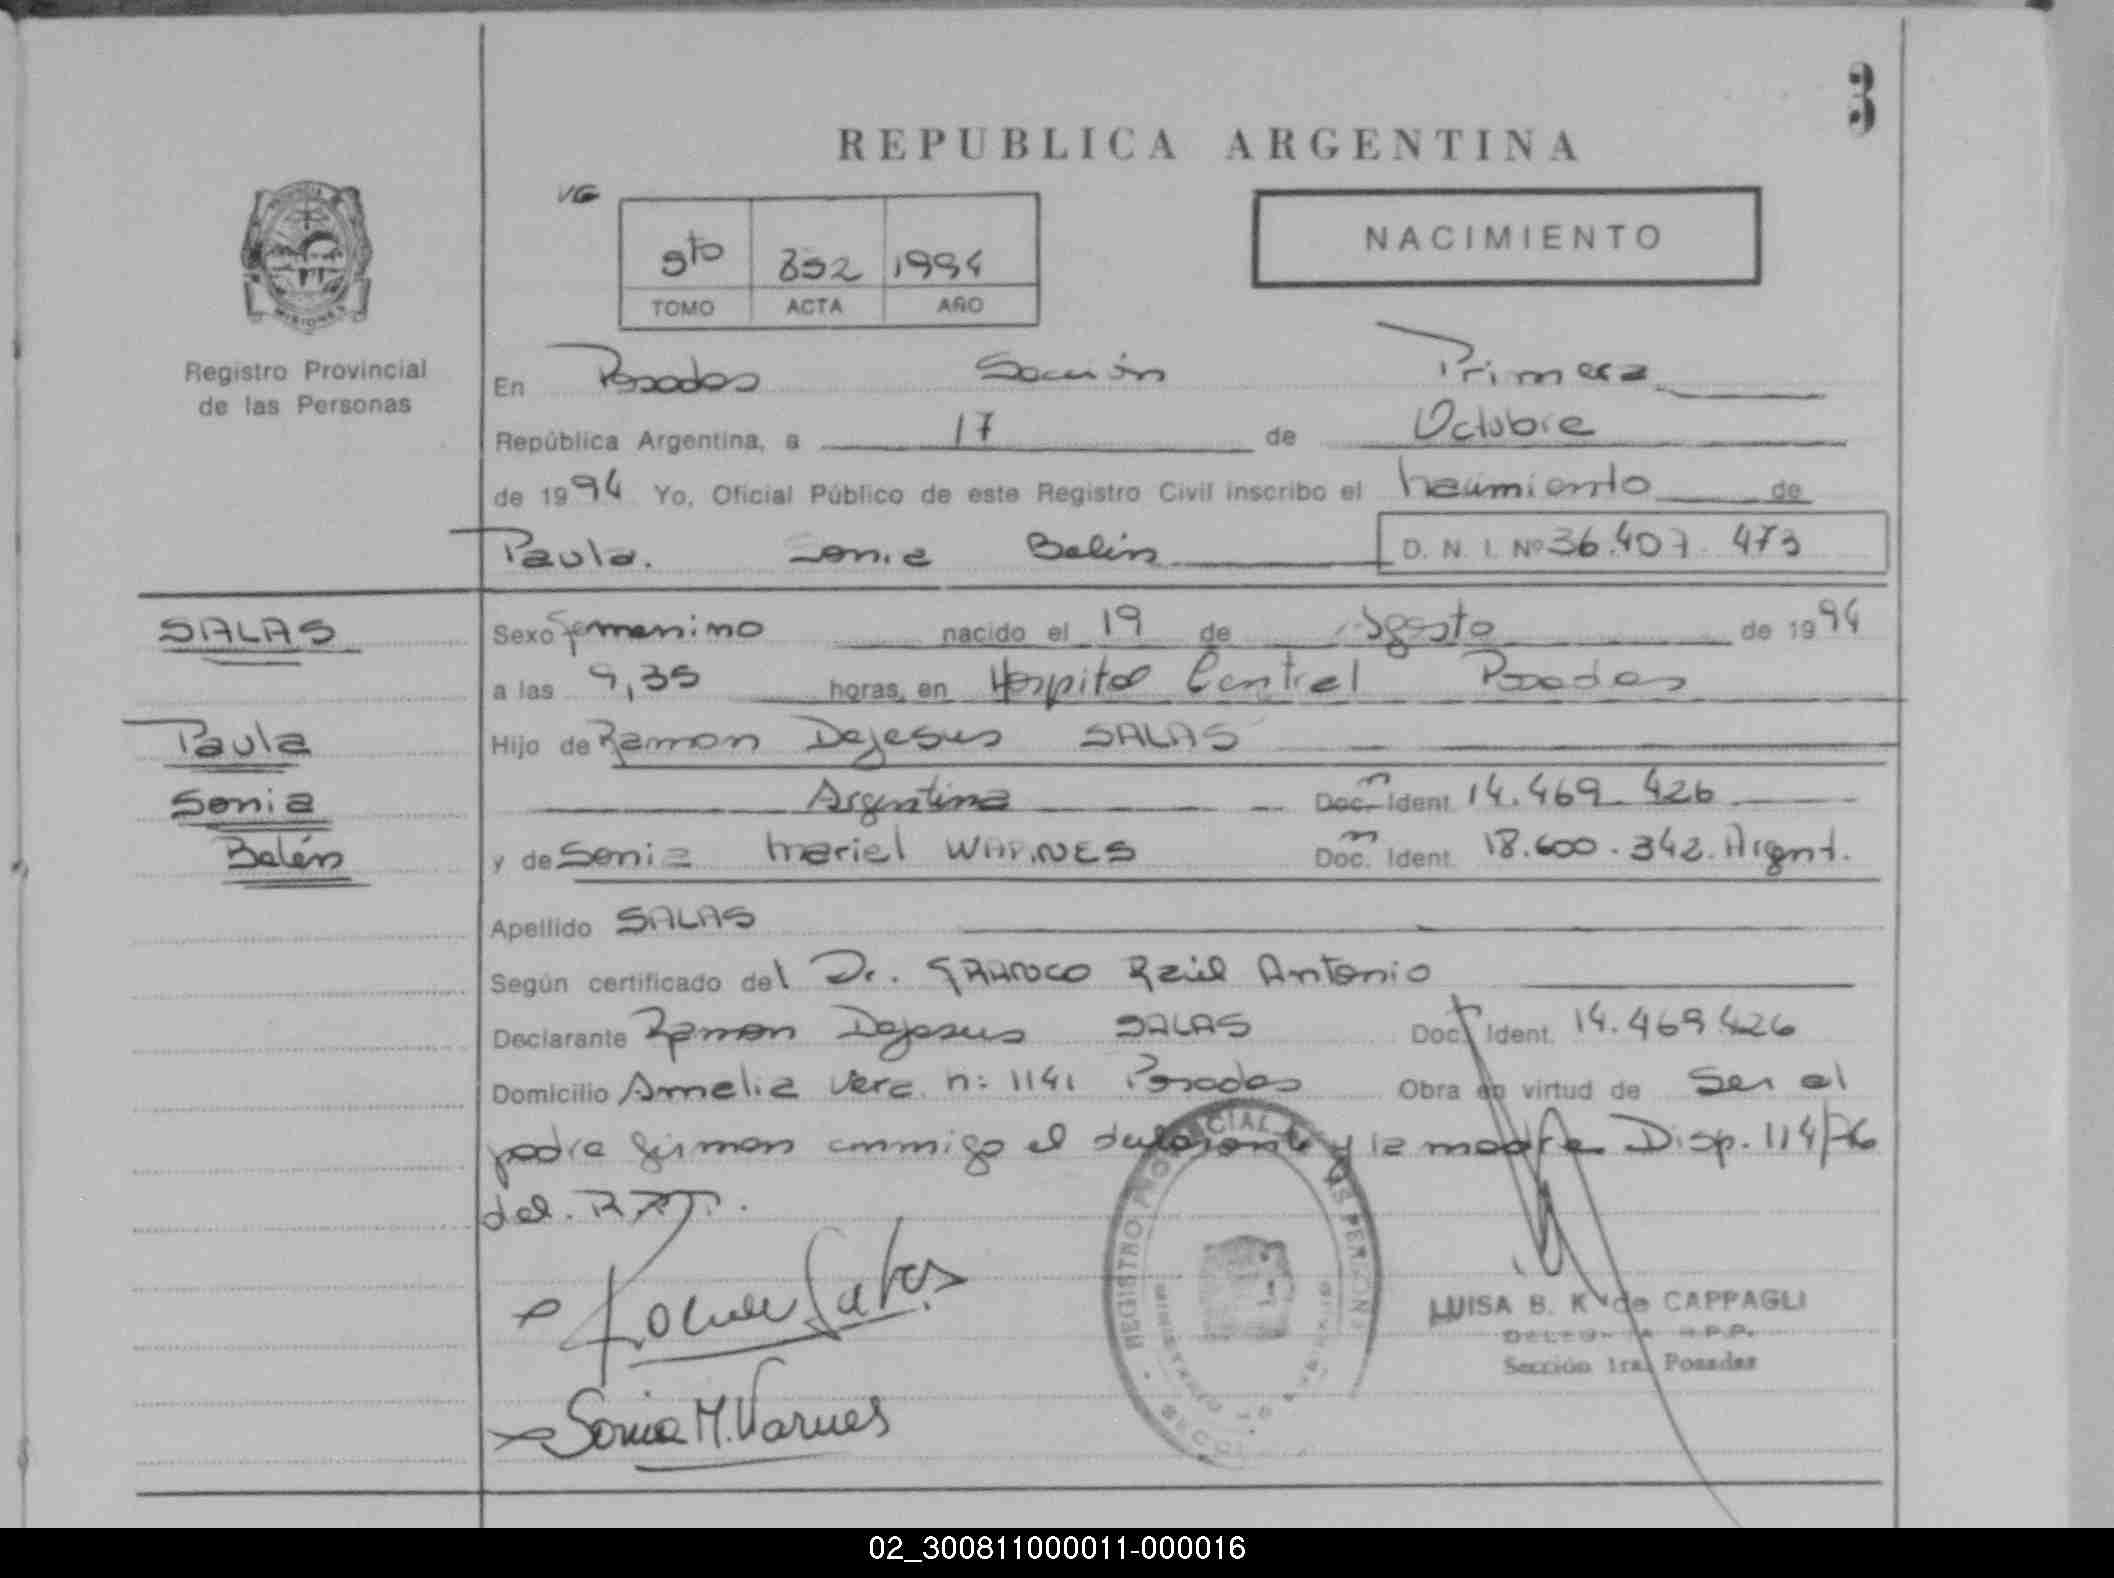 3
REPUBLICA ARGENTINA
VG
NACIMIENTO
5to 852 1994
TOMO ACTA AÑO
MISIONES
Registro Provincial
de las Personas
En Posadas Sección Primera
República Argentina, a 17 de Octubre
de 1994 Yo, Oficial Público de este Registro Civil inscribo el nacimiento de
Paula Sonia Belén D. N. I. Nº 36.407.473
SALAS
Sexo femenino nacido el 19 de Agosto de 1994
a las 9,35 horas, en Hospital Central Posadas
Paula
Hijo de Ramon Dejesus SALAS
Sonia
Argentina Doc. Ident. 14.469.426
Belén
y de Sonia Mariel WARNES Doc. Ident. 18.600.342. Argent.
Apellido SALAS
Según certificado del Dr. FRANCO Raúl Antonio
Declarante Ramon Dejesus SALAS Doc. Ident. 14.469.426
Domicilio Amelia Vera n: 1141 Posadas Obra en virtud de Ser el
padre firman conmigo el declarante y la madre Disp. 114/76
del.
Sonia M. Warnes
LUISA B. K de CAPPAGLI
Sección 1ra. Posadas
02_300811000011-000016